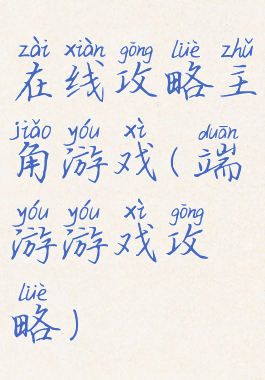 zài xiàn gōng lüè zhǔ
在线攻略主
jiǎo yóu xì duān
角游戏(端
yóu yóu xì gōng
游游戏攻
lüè
略)